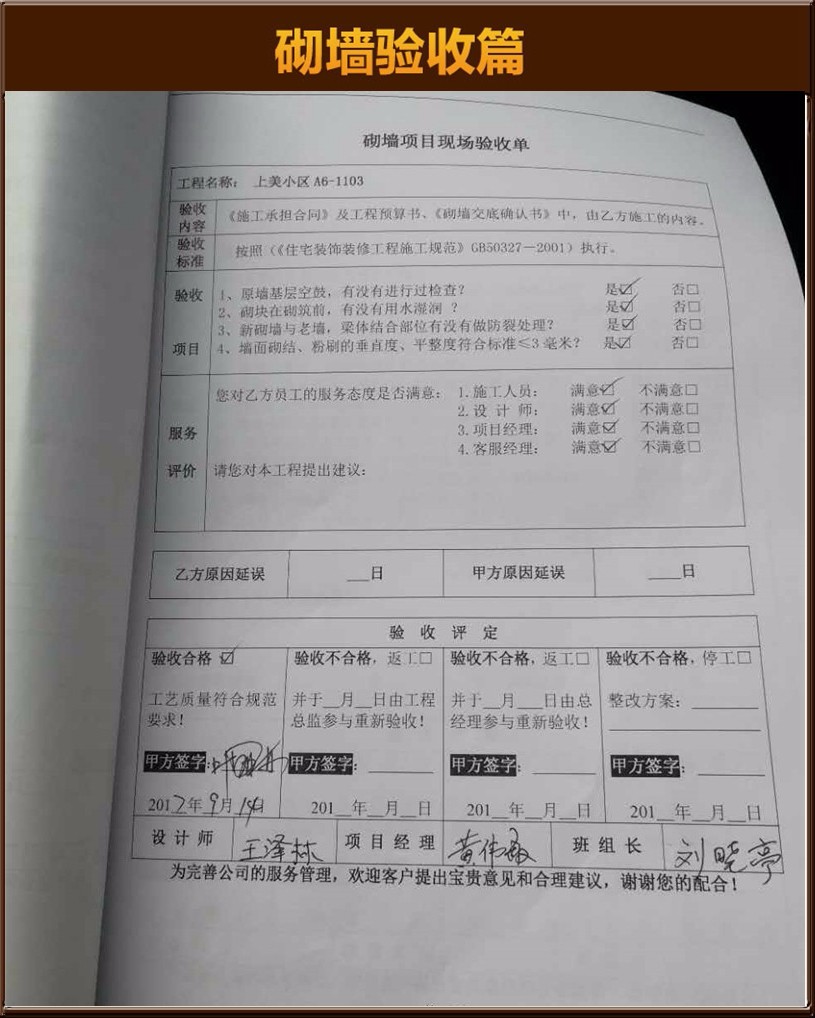 砌墙验收篇
砌墙项目现场验收单
工程名称： 上美小区 A6-1103
验收内容 《施工承担合同》及工程预算书、《砌墙交底确认书》中，由乙方施工的内容。
验收标准 按照（《住宅装饰装修工程施工规范》GB50327－2001）执行。
验收项目
1、原墙基层空鼓，有没有进行过检查？ 是☑ 否□
2、砌块在砌筑前，有没有用水湿润 ？ 是☑ 否□
3、新砌墙与老墙，梁体结合部位有没有做防裂处理？ 是☑ 否□
4、墙面砌结、粉刷的垂直度、平整度符合标准≤3 毫米？ 是☑ 否□
服务评价
您对乙方员工的服务态度是否满意： 1.施工人员： 满意☑ 不满意□
2.设 计 师： 满意☑ 不满意□
3.项目经理： 满意☑ 不满意□
4.客服经理： 满意☑ 不满意□
请您对本工程提出建议：
乙方原因延误 ___日 甲方原因延误 ____日
验 收 评 定
验收合格 ☑ 验收不合格，返工□ 验收不合格，返工□ 验收不合格，停工□
工艺质量符合规范 并于__月__日由工程 并于__月___日由总 整改方案：________
要求！ 总监参与重新验收！ 经理参与重新验收！
甲方签字： 甲方签字：________ 甲方签字：________ 甲方签字：________
2012年9月14日 201__年__月__日 201__年__月__日 201__年__月__日
设 计 师 王泽林 项 目 经 理 黄伟敏 班 组 长 刘晓亭
为完善公司的服务管理，欢迎客户提出宝贵意见和合理建议，谢谢您的配合！